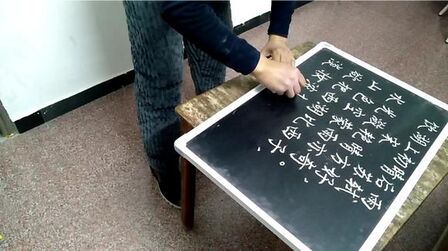 饮湖上初晴后雨
水光潋滟晴方好
山色空蒙雨亦奇。
欲把西湖比西子。
淡妆浓